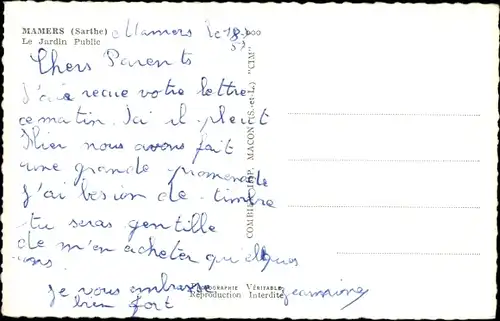 MAMERS (Sarthe) Mamers le 18-
Le Jardin Public
Chers Parents
J'ai recue votre lettre
ce matin. Ici il pleut
Hier nous avons fait
une grande promenade
J'ai besion de timbre
tu seras gentille
de m'en acheter quelques
uns.
Je vous embrasse
bien fort
PHOTOGRAPHIE VÉRITABLE
Reproduction Interdite
COMBIER IMP. MACON (S.-et-L.) "CIM"